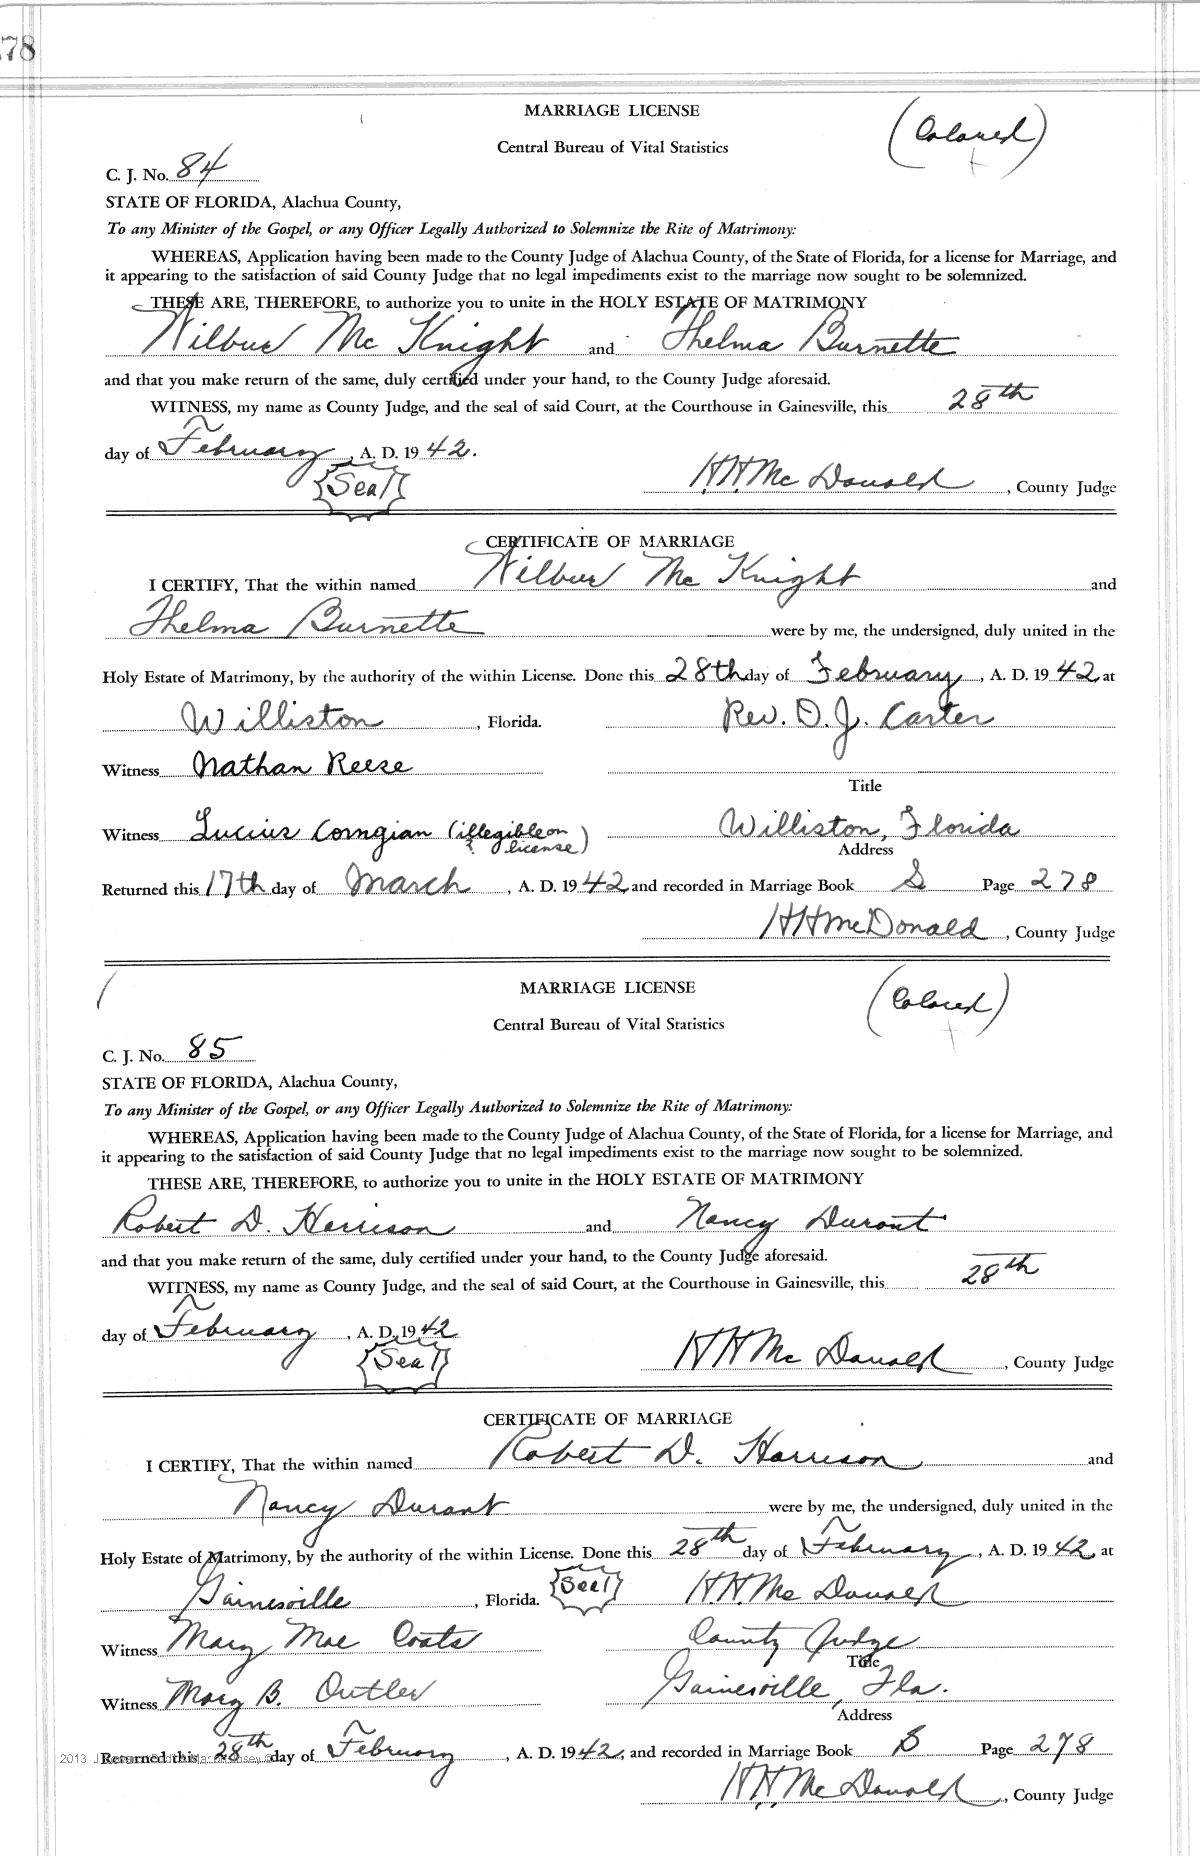 78
MARRIAGE LICENSE
(Colored)
Central Bureau of Vital Statistics
C. J. No. 84
STATE OF FLORIDA, Alachua County,
To any Minister of the Gospel, or any Officer Legally Authorized to Solemnize the Rite of Matrimony:
WHEREAS, Application having been made to the County Judge of Alachua County, of the State of Florida, for a license for Marriage, and
it appearing to the satisfaction of said County Judge that no legal impediments exist to the marriage now sought to be solemnized.
THESE ARE, THEREFORE, to authorize you to unite in the HOLY ESTATE OF MATRIMONY
Wilbur Mc Knight and Thelma Burnette
and that you make return of the same, duly certified under your hand, to the County Judge aforesaid.
WITNESS, my name as County Judge, and the seal of said Court, at the Courthouse in Gainesville, this 28th
day of February, A. D. 19 42.
(Seal) H.H. Mc Donald, County Judge
CERTIFICATE OF MARRIAGE
I CERTIFY, That the within named Wilbur Mc Knight and
Thelma Burnette were by me, the undersigned, duly united in the
Holy Estate of Matrimony, by the authority of the within License. Done this 28th day of February, A. D. 19 42 at
Williston, Florida. Rev. O. J. Carter
Witness Nathan Reese
Title
Witness Lucius Corngian (illegible on license) Williston, Florida
Address
Returned this 17th day of March, A. D. 19 42 and recorded in Marriage Book S Page 278
HH McDonald, County Judge
MARRIAGE LICENSE
(Colored)
Central Bureau of Vital Statistics
C. J. No. 85
STATE OF FLORIDA, Alachua County,
To any Minister of the Gospel, or any Officer Legally Authorized to Solemnize the Rite of Matrimony:
WHEREAS, Application having been made to the County Judge of Alachua County, of the State of Florida, for a license for Marriage, and
it appearing to the satisfaction of said County Judge that no legal impediments exist to the marriage now sought to be solemnized.
THESE ARE, THEREFORE, to authorize you to unite in the HOLY ESTATE OF MATRIMONY
Robert D. Harrison and Nancy Durant
and that you make return of the same, duly certified under your hand, to the County Judge aforesaid.
WITNESS, my name as County Judge, and the seal of said Court, at the Courthouse in Gainesville, this 28th
day of February, A. D. 19 42
(Seal) H H Mc Donald, County Judge
CERTIFICATE OF MARRIAGE
I CERTIFY, That the within named Robert D. Harrison and
Nancy Durant were by me, the undersigned, duly united in the
Holy Estate of Matrimony, by the authority of the within License. Done this 28th day of February, A. D. 19 42 at
Gainesville, Florida. (Seal) H.H. Mc Donald
Witness Mary Mae Coats County Judge
Title
Witness Mary B. Outler Gainesville, Fla.
Address
Returned this 28th day of February, A. D. 19 42, and recorded in Marriage Book S Page 278
H.H. Mc Donald, County Judge
2013